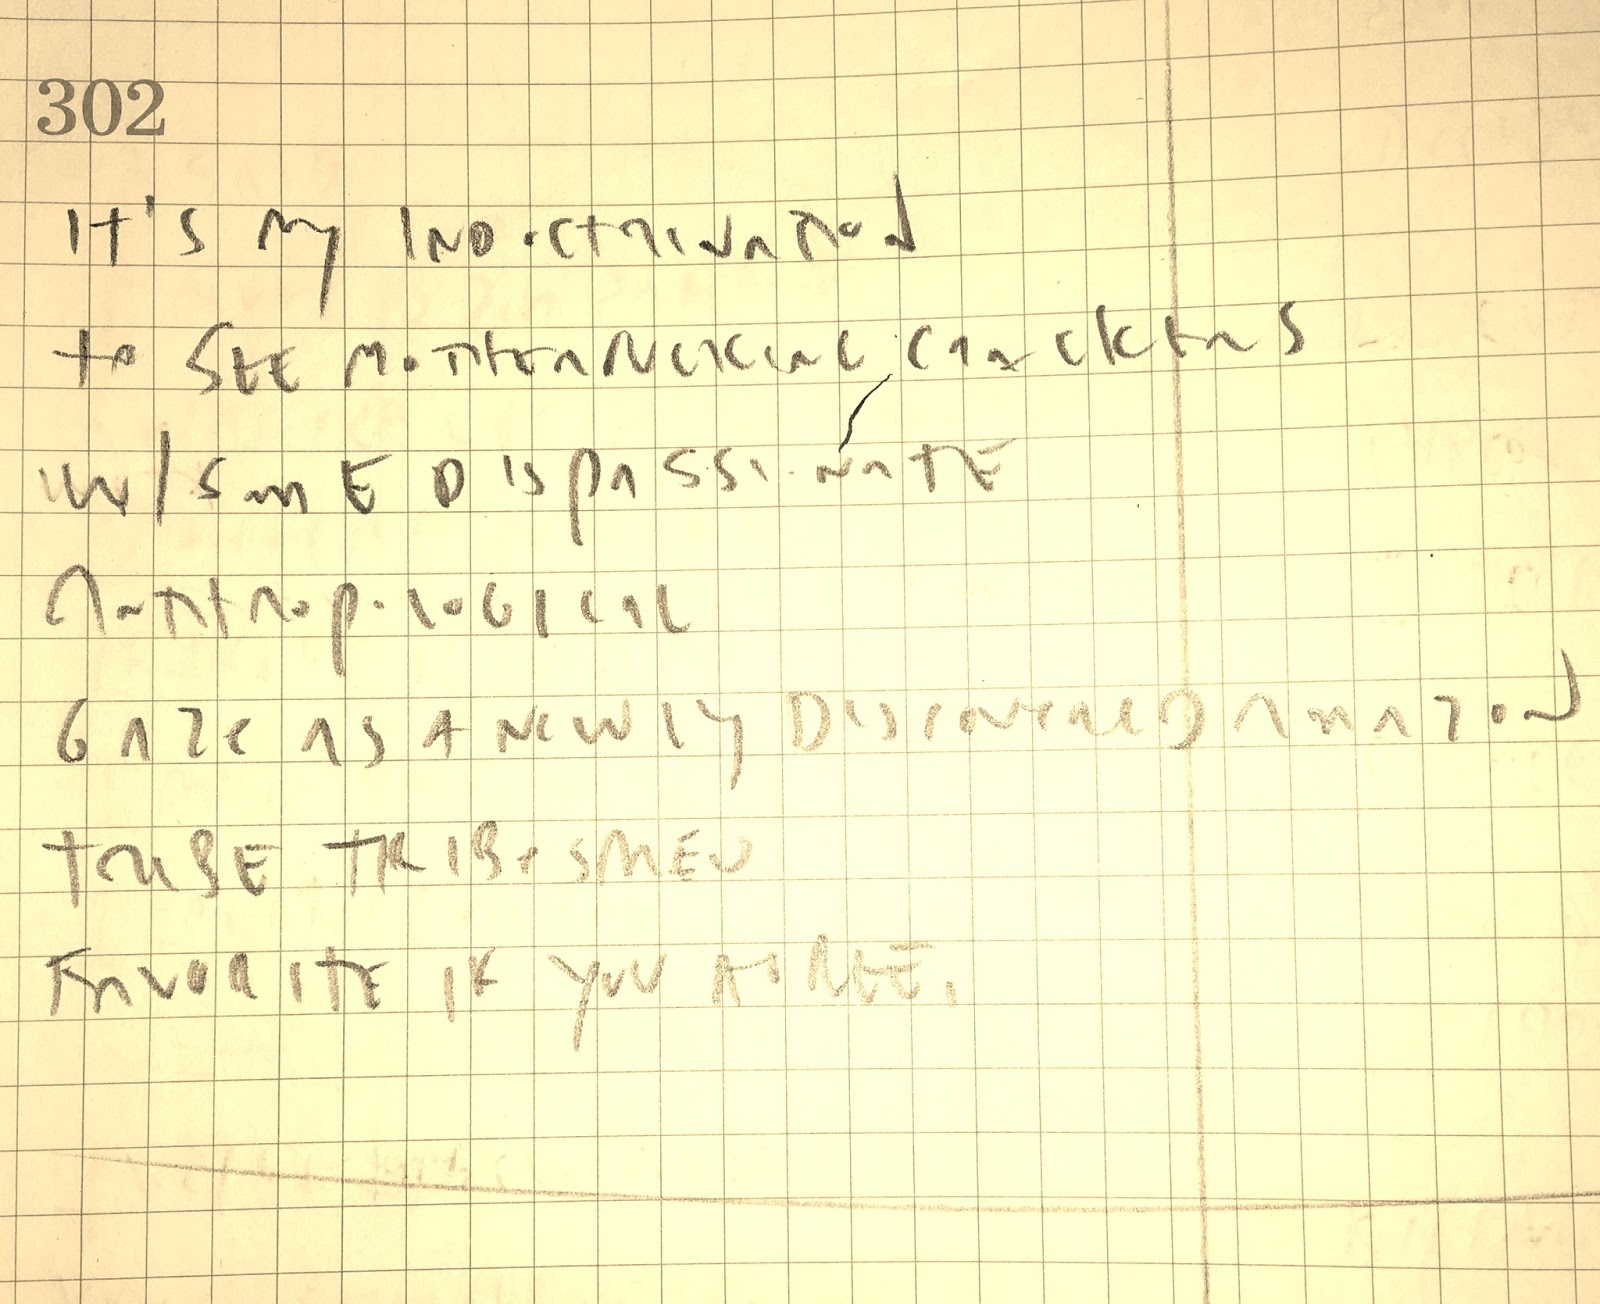 302
IT'S MY INDOCTRINATION
TO SEE MOTHERFUCKING CRACKERS
W/SAME DISPASSIONATE
ANTHROPOLOGICAL
GAZE AS A NEWLY DISCOVERED AMAZON
TRIBE TRIBESMEN
FAVORITE IF YOU AGREE.